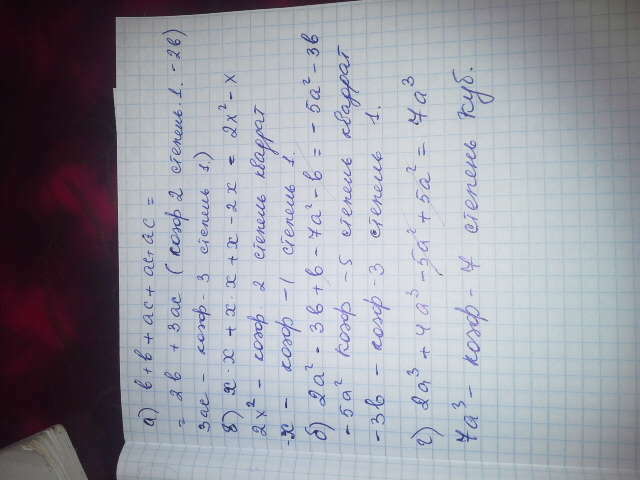 а) в + в + ас + ас + ас =
= 2в + 3ас ( коэф 2 степень 1. - 2в)
3ас - коэф - 3 степень 1.)
в) x · x + x · x + x - 2x = 2x² - x
2x² - коэф 2 степень квадрат
-x - коэф -1 степень 1.
б) 2а² - 3в + в - 7а² - в = - 5а² - 3в
- 5а² коэф - 5 степень квадрат
- 3в - коэф - 3 степень 1.
г) 2а³ + 4а³ - 5а² + 5а² = 7а³
7а³ - коэф - 7 степень куб.